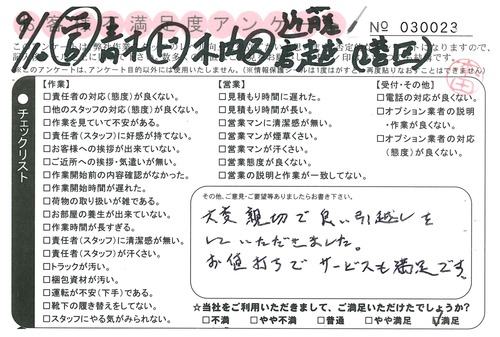 お客様不満足度アンケート
No 030023
チェックリスト
【作業】
□責任者の対応(態度)が良くない。
□他のスタッフの対応(態度)が良くない。
□作業を見ていて不安がある。
□責任者(スタッフ)に好感が持てない。
□お客様への挨拶が出来ていない。
□ご近所への挨拶・気遣いが無い。
□作業開始前の内容確認がなかった。
□作業開始時間が遅れた。
□荷物の取り扱いが雑である。
□お部屋の養生が出来ていない。
□作業時間が長すぎる。
□責任者(スタッフ)に清潔感が無い。
□責任者(スタッフ)が汗くさい。
□トラックが汚い。
□梱包資材が汚い。
□運転が不安(下手)である。
□靴下の履き替えをしてない。
□スタッフにやる気がみられない。
【営業】
□見積もり時間に遅れた。
□見積もり時間が長い。
□営業マンに清潔感が無い。
□営業マンが煙草くさい。
□営業マンが汗くさい。
□営業態度が良くない。
□営業の説明と作業が一致してない。
【受付・その他】
□電話の対応が良くない。
□オプション業者の説明
・作業が良くない。
□オプション業者の対応
(態度)が良くない。
その他、ご意見・ご要望等ありましたらお書き下さい。
大変親切で良い引越しを
していただきました。
お値打ちでサービスも満足です。
☆当社をご利用いただきまして、ご満足いただけたでしょうか?
□不満 □やや不満 □普通 □やや満足 □満足